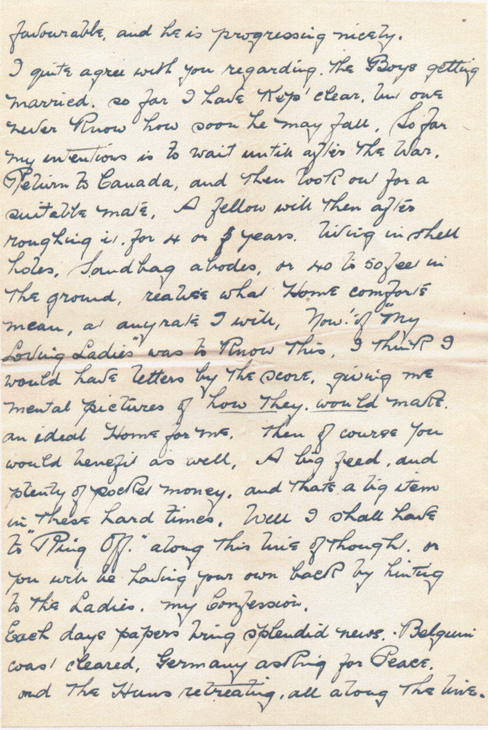 favourable, and he is progressing nicely.
I quite agree with you regarding. the Boys getting
married. so far I have Kept clear, but one
never Know how soon he may fall, So far
my intentions is to wait untill after the War.
Return to Canada, and then look out for a
suitable mate, A fellow will then after
roughing it. for 4 or 5 years. living in shell
holes, Sandbag abodes, or 40 to 50 feet in
the ground, realise what Home comforts
mean, at anyrate I will, Now! "of "My
Loving Ladies" was to Know This, I think I
would have letters by the score, giving me
mental pictures of how they. would make.
an ideal Home for me. Then of course you
would benefit as well, A big feed, and
plenty of pocket money, and thats a big item
in these hard times, Well I shall have
to "Ring Off." along this line of though, or
you will be having your own back by hinting
to the Ladies. my Confession,
Each days papers bring splendid news. Belguim
coast cleared, Germany asking for Peace,
and the Huns retreating, all along the line.